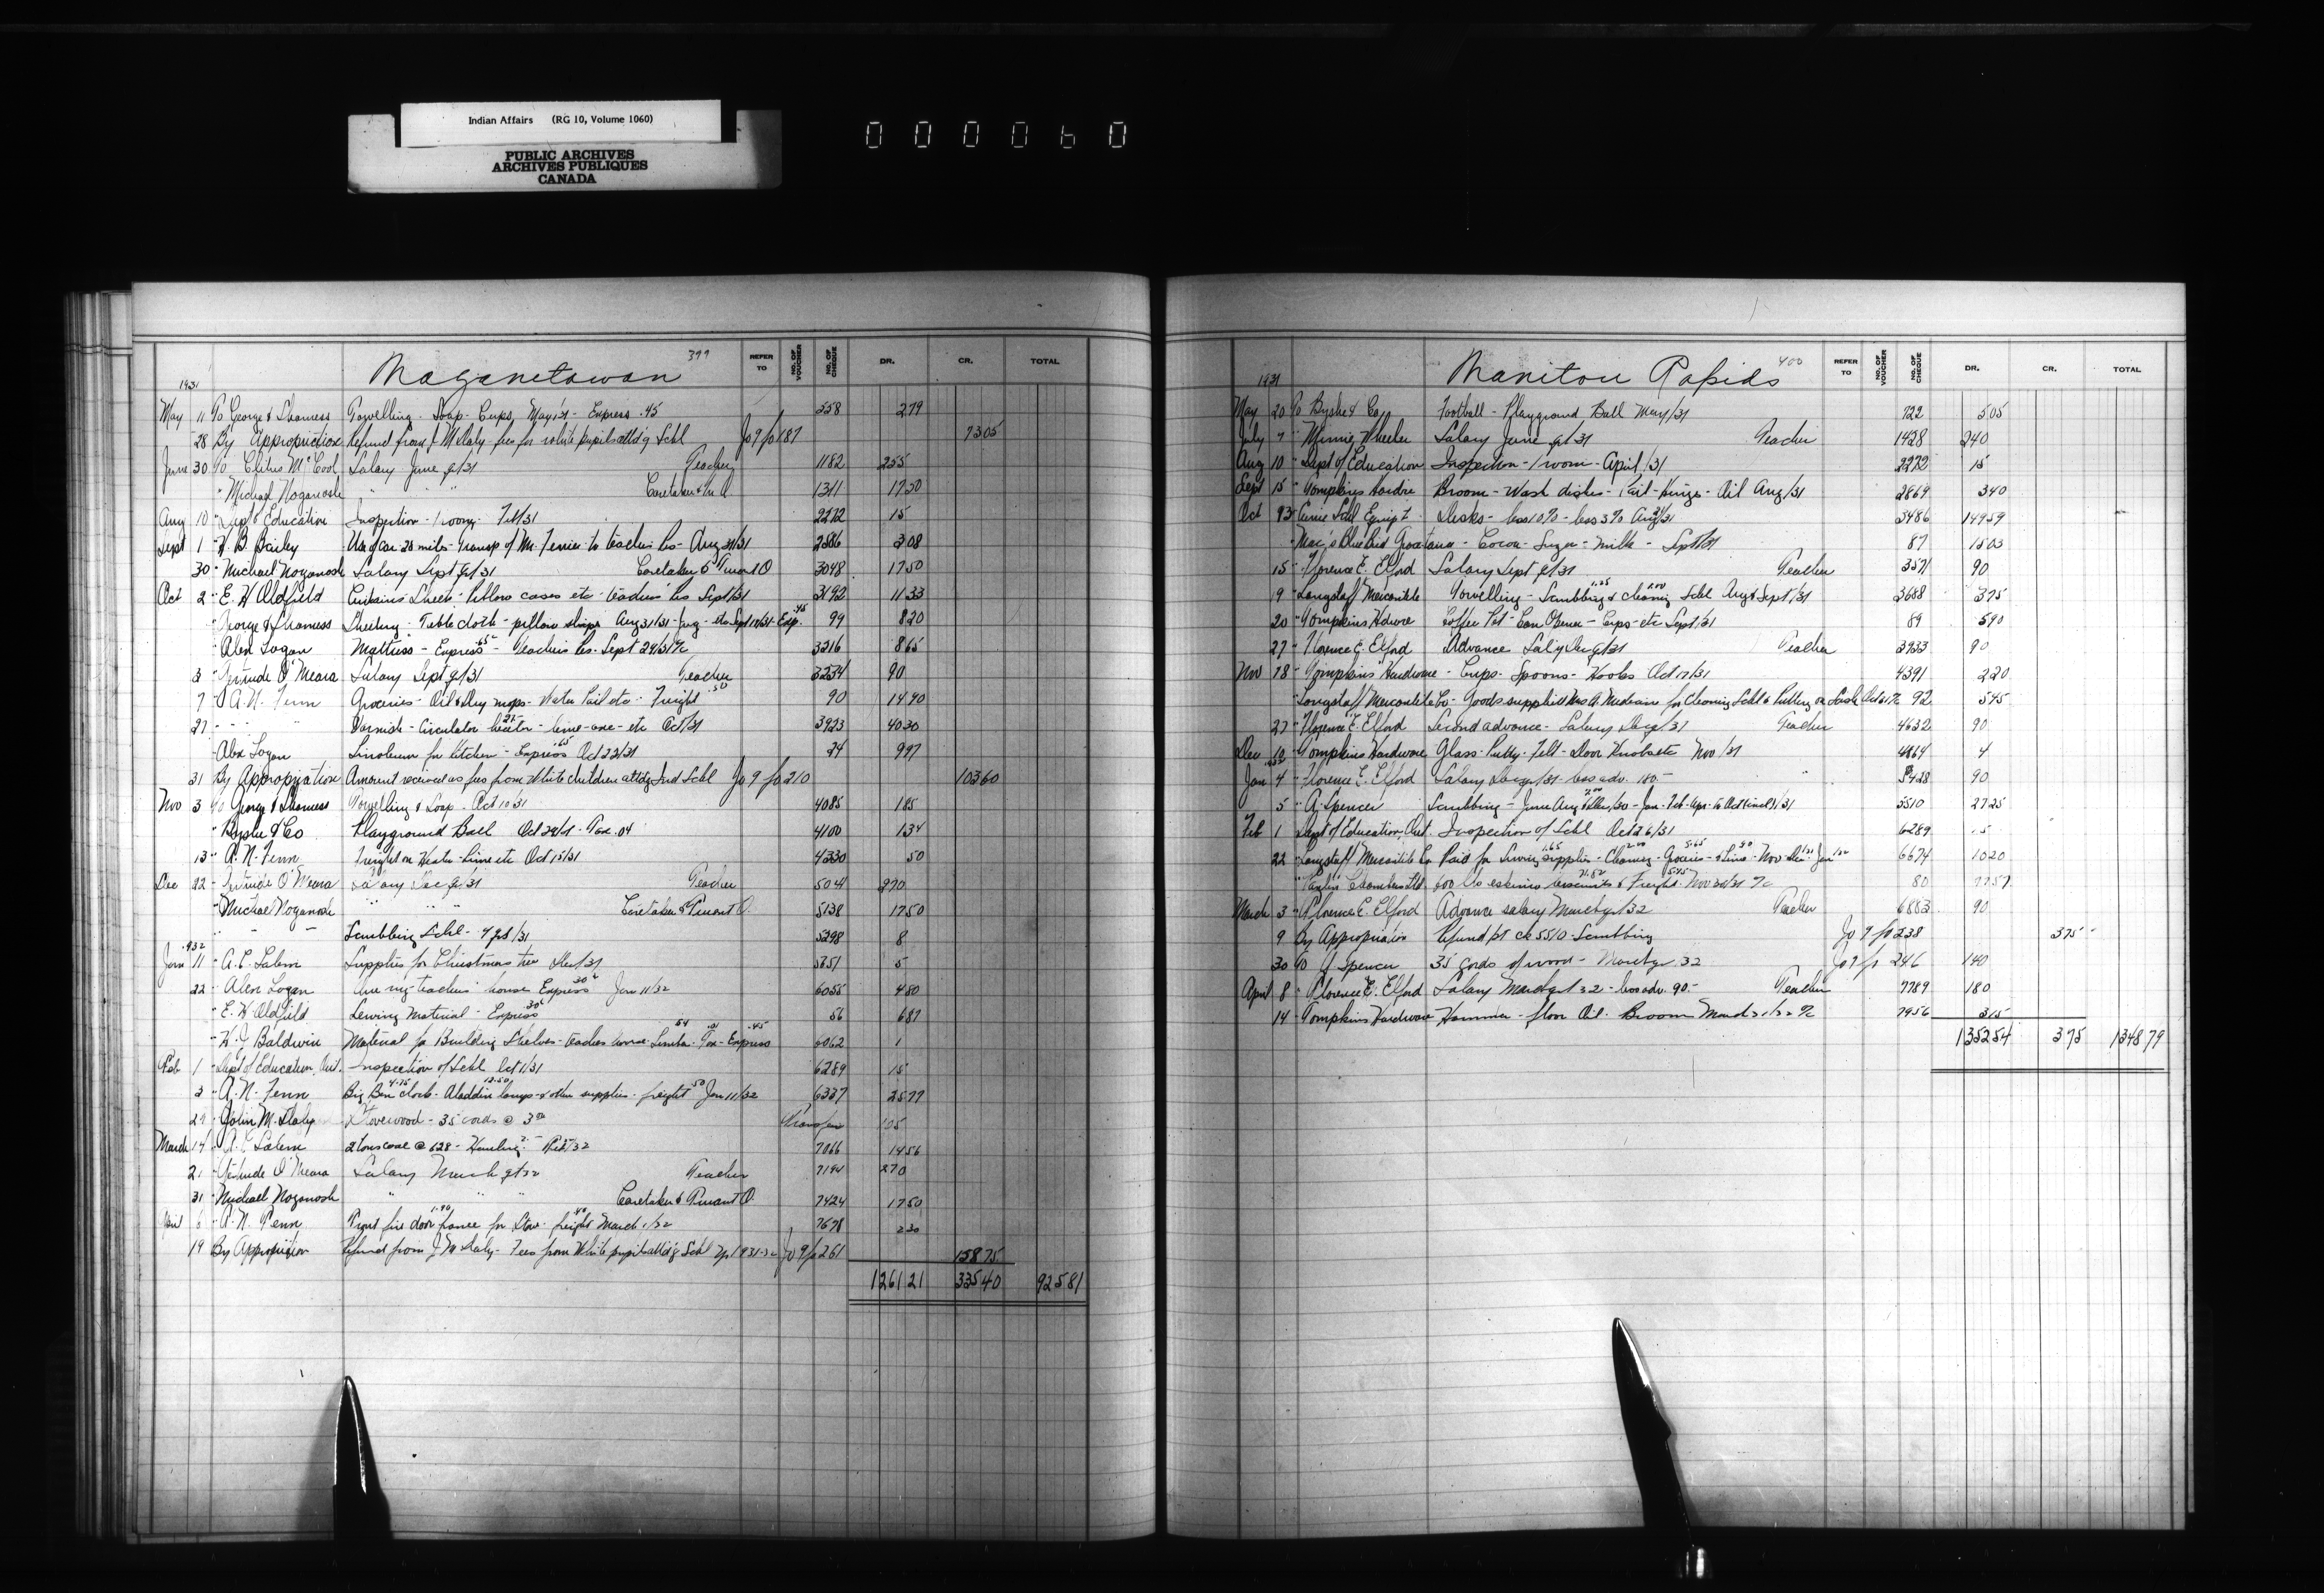 Indian Affairs (RG 10, Volume 1060)
PUBLIC ARCHIVES
ARCHIVES PUBLIQUES
CANADA
000060
Maganetawan 399 REFER TO NO. OF VOUCHER NO. OF CHEQUE DR. CR. TOTAL
1931
May 11 To George & Shamess Towelling - Soap - Cups, May 1/31 - Express .45 558 2 79
28 By Appropriation Refund from J M Daly - fees for white pupils attd'g Schl Jo 9 fo 187 73 05
June 30 To Clitus McCool Salary June qr/31 Teacher 1182 255
" Michael Noganosh " " " Caretaker & Tr. O 1311 17 50
Aug 10 " Dept of Education Inspection - 1 room - Feb/31 2272 15
Sept 1 " H. B. Bailey Use of car 28 miles - transp of Mr. Ferrier to teachers res - Aug 31/31 2586 3 08
30 " Michael Noganosh Salary Sept qr/31 Caretaker & Truant O 3048 17 50
Oct 2 " E. H Oldfield Curtains Sheets - Pillow cases etc - teachers' res Sept 1/31 3192 11 33
" George & Shamess Sheeting - Table cloth - pillow slips Aug 31/31 - etc Sept 17/31 - Exp. .45 99 8 20
" Alex Logan Mattress - Express .65 - Teachers Res - Sept 29/31 a/c 3216 8 65
3 " Gertrude O'Meara Salary Sept qr/31 Teacher 3234 90
7 " A. N. Fenn Groceries - Oil & Dry mops - Water Pail etc - Freight .50 90 14 90
27 " " " Varnish - Circulator heater - lime - axe - etc Oct/31 3923 40 30
" Alex Logan Linoleum for kitchen - Express .65 Oct 22/31 24 9 97
31 By Appropriation Amount received as fees from White children attd'g Ind Schl Jo 9 fo 210 103 60
Nov 3 To George & Shamess Towelling & Soap - Oct 10/31 4085 1 85
" Byshe & Co Playground Ball Oct 29/31 - Tax .04 4100 1 34
13 " A. N. Fenn Freight on Heater - Lime etc Oct 15/31 4330 50
Dec 22 " Gertrude O'Meara Salary Dec qr/31 Teacher 5041 270
" Michael Noganosh " " " Caretaker & Truant O. 5138 17 50
" - - Scrubbing Schl - 5298 8
1932
Jan 11 " A. E. Salem Supplies for Christmas tree Dec/31 5751 5
22 " Alex Logan teachers' house Express .30 Jan 11/32 6055 4 80
" E. H Oldfield Sewing Material - Express .30 56 6 87
" H. J Baldwin Material for Building Shelves - teachers house - Lumber - Tax - Express .45 6062 1
Feb 1 " Dept of Education, Ont. Inspection of Schl Oct 1/31 6289 15
3 " A. N. Fenn Big Ben clock 4.75 - Aladdin lamps & other supplies - freight .50 Jan 11/32 6337 25 77
29 " John M. Daly Stovewood - 35 cords @ 3 00 Transfer 105
March 14 " A. E. Salem 2 tons coal @ 628 - Hauling 2.- Feb/32 7066 14 56
21 " Gertrude O'Meara Salary March qr 32 Teacher 7194 270
31 " Michael Noganosh " " " Caretaker & Truant O. 7424 17 50
April 6 " A. N. Fenn Front fire door frame for Stove - freight .40 March 1/32 7678 2 30
19 By Appropriation Refund from J M Daly - Fees from White pupils attd'g Schl 1931-32 Jo 9 fo 261 158 75
1261 21 335 40 925 81
Manitou Rapids 400 REFER TO NO. OF VOUCHER NO. OF CHEQUE DR. CR. TOTAL
1931
May 20 To Byshe & Co. Football - Playground Ball May/31 722 5 05
July 7 " Minnie Wheeler Salary June qr/31 Teacher 1428 240
Aug 10 " Dept of Education Inspection - 1 room - April/31 2272 15
Sept 15 " Tompkins Hardre Broom - Wash dishes - Pail - Hinges - Oil Aug/31 2869 3 40
Oct 13 " Schl Equip't Desks - less 10% - less 3% Aug/31 3486 149 59
" Mac's Blue Bird Grocetaria - Cocoa - Sugar - Milk - Sept/31 87 15 03
15 " Florence E. Elford Salary Sept qr/31 Teacher 3571 90
19 " Longstaff Mercantile Towelling - Scrubbing 1.25 & cleaning 2.00 Schl Aug & Sept/31 3688 3 75
20 " Tompkins Hdwre Coffee Pot - Can Opener - Cups - etc Sept 1/31 89 5 90
27 " Florence E. Elford Advance Sal'y Dec qr/31 Teacher 3933 90
Nov 18 " Tompkins Hardware - Cups - Spoons - Hooks Oct 17/31 4391 2 20
" Longstaff Mercantile Co - Goods supplied Mrs A. for Cleaning Schl & Putting on Sash Oct 31 a/c 92 5 45
27 " Florence E. Elford Second advance - Salary Dec qr/31 Teacher 4632 90
Dec 10 " Tompkins Hardware Glass - Putty - Felt - Door Knobs etc Nov/31 4864 4
1932
Jan 4 " Florence E. Elford Salary Dec qr/31 - less adv. 180.- " 5428 90
5 " A. Spencer Scrubbing - June Aug & Dec/30 - Jan - Feb - Apr - to Oct (incl)/31 5510 27 25
Feb 1 Dept of Education, Ont. Inspection of Schl Oct 26/31 6289 15
22 " Longstaff Mercantile Co Paid for Sewing supplies 1.65 - Cleaning 2.00 - Groceries 5.65 - & Lime .90 - Nov - Dec/31 - Jan/32 6674 10 20
" Chambers Ltd 600 lbs eskimo biscuits 71.82 & Freight 5.75 Nov 30/31 a/c 80 77 57
March 3 " Florence E. Elford Advance salary March qr/32 Teacher 6883 90
9 By Appropriation Refund pt ck 5510 - Scrubbing Jo 9 fo 238 3 75
30 To J Spencer 35 cords of wood - March qr. 32 Jo 9 fo 246 140
April 8 " Florence E. Elford Salary March qr/32 - less adv. 90.- Teacher 7789 180
14 " Tompkins Hardware Hammer - floor Oil - Broom March 31/32 a/c 7956 3 15
1352 54 3 75 1348 79